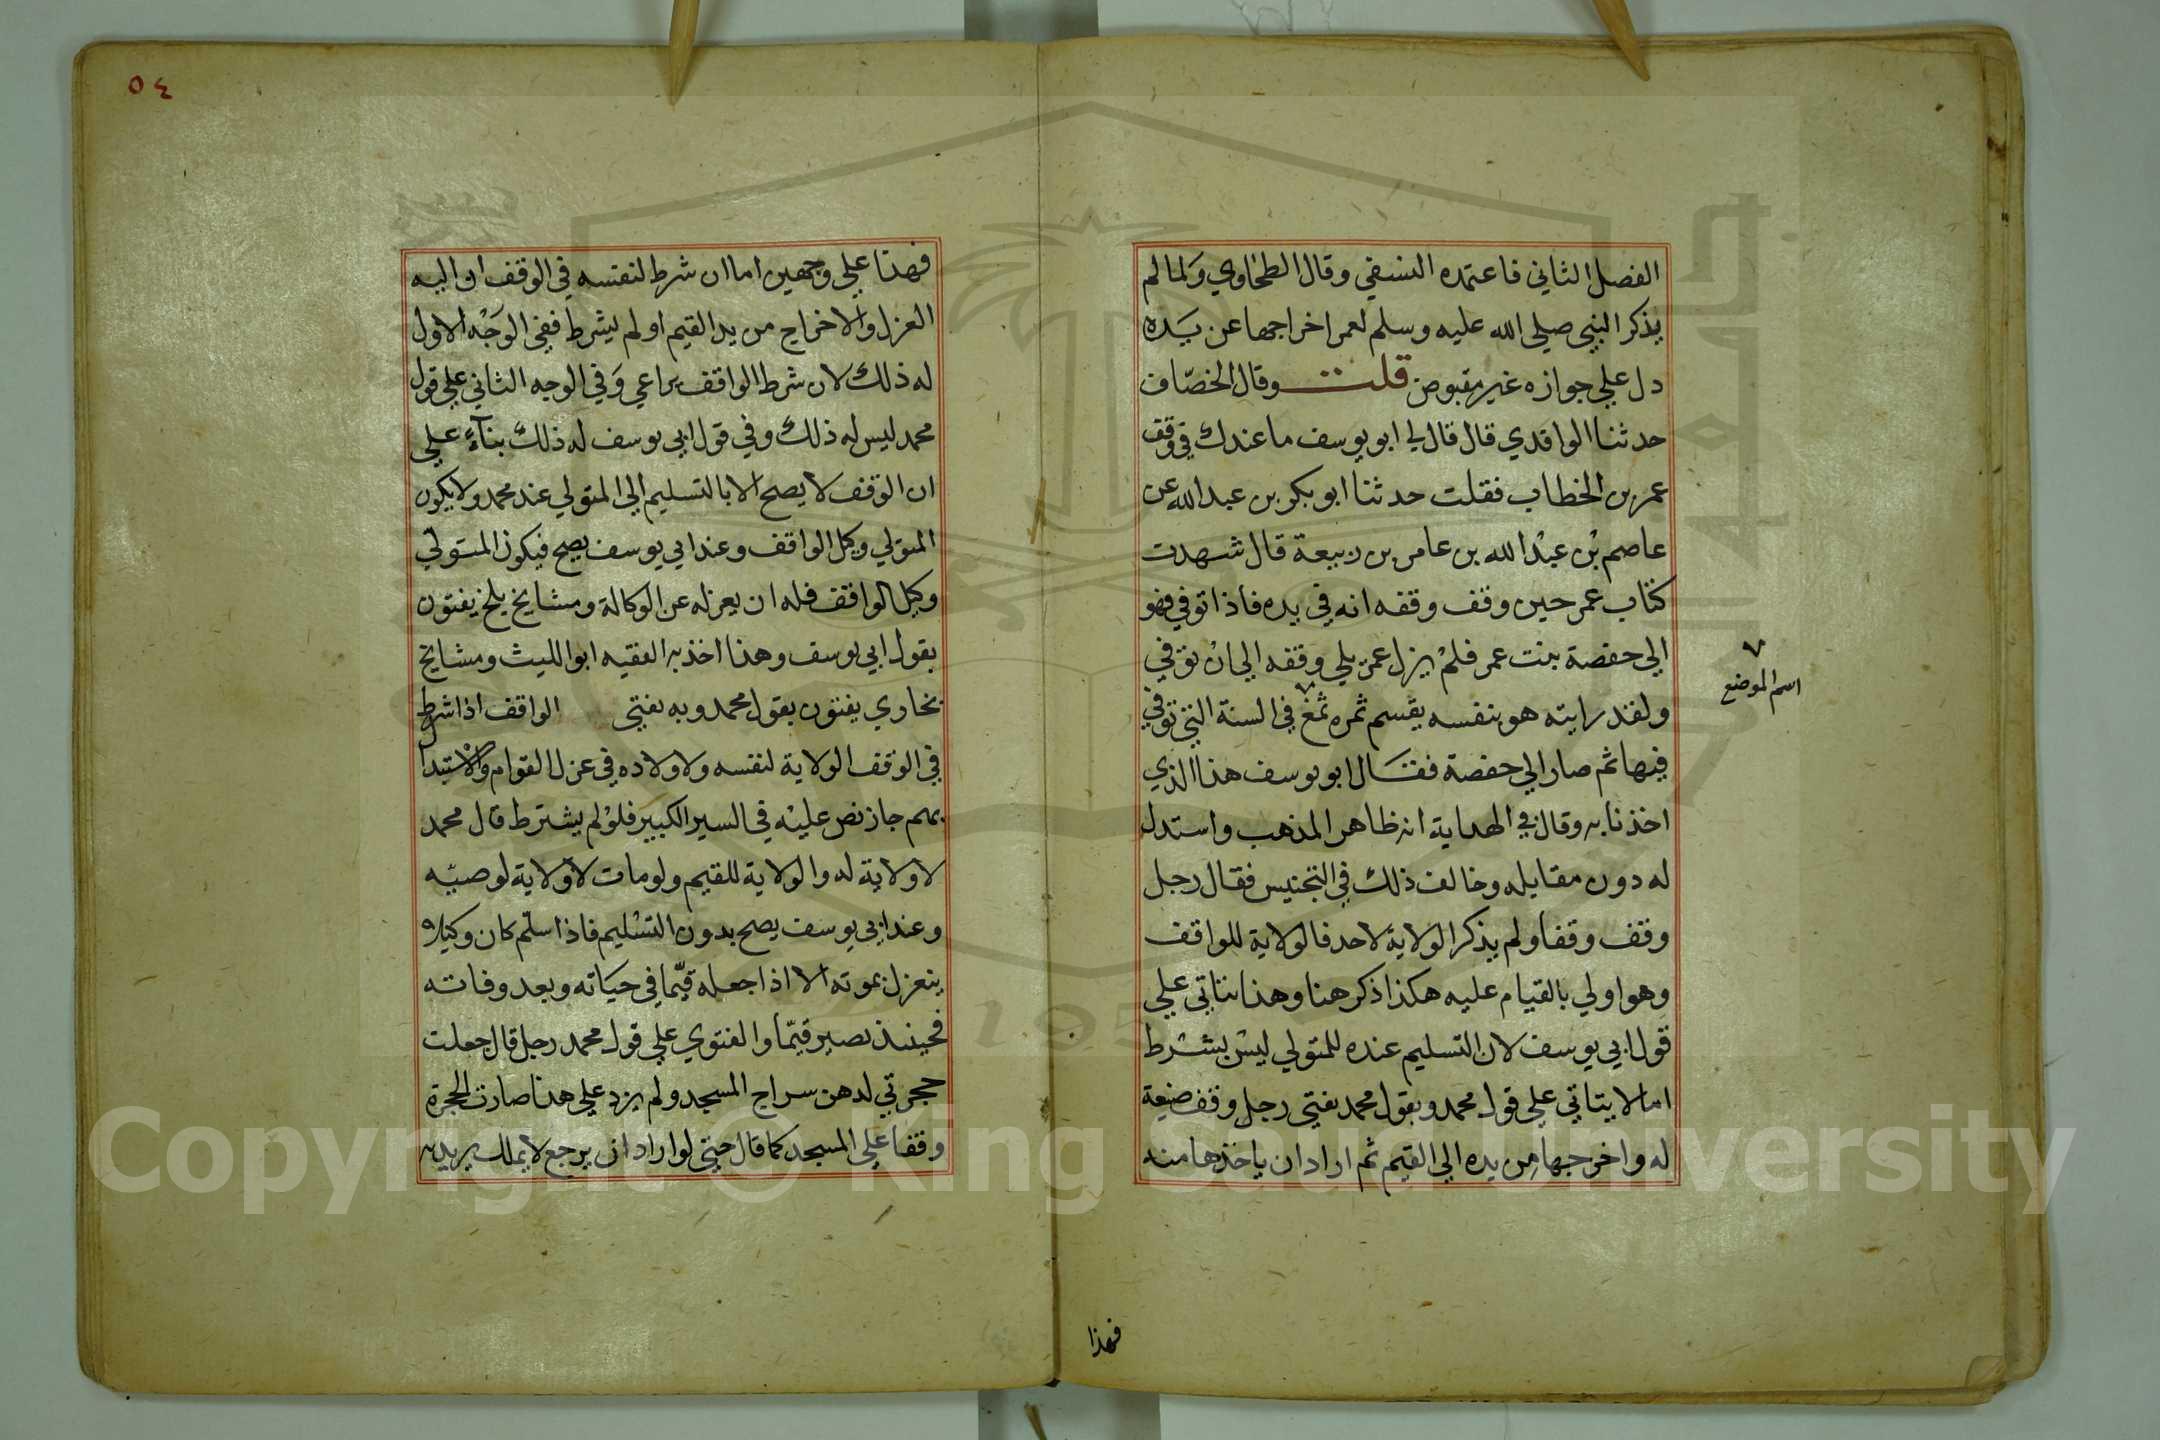 الفصل الثاني فاعتمده النسفي وقال الطحاوي ولما لم
يذكر النبي صلي الله عليه وسلم لعمر اخراجها عن يَده
دل علي جوازه غير مقبوض قلت وقال الخصّاف
حدثنا الواقدي قال قال لي ابو يوسف ما عندك في وقف
عمر بن الخطاب فقلت حدثنا ابو بكر بن عبد الله عن
عاصم بْن عبْد الله بن عامر بن ربيعة قال شهدت
كتاب عمر حين وقف وقفه انه في يده فاذا توفي فهو
الي حفصة بنت عمر فلمْ يزل عمر يلي وقفه الي انْ توفي
ولقد رايته هو بنفسه يقسم ثمره ثمغ في السنة التي توفي
٧
اسم الموضع
فيها ثم صار الي حفصة فقال ابو يوسف هذا الذي
اخذنا به وقال في الهداية انه ظاهر المذهب واستدل
له دون مقابله وخالف ذلك في التجنيس فقال رجل
وقف وقفا ولم يذكر الولاية لاحد فالولاية للواقف
وهو اولي بالقيام عليه هكذا ذكر هنا وهذا يتاتي علي
قول ابي يوسف لان التسليم عنده للمتولي ليس بشرط
اما لا يتاتي علي قول محمد وبقول محمد يفتي رجل وقف ضيعة
له واخرجها من يده الي القيم ثم اراد ان ياخذها منه
فهذا
٥٤
فهذا علي وجهين اما ان شرط لنفسه في الوقف او اليه
العزل والاخراج من يد القيم او لم يشرط ففي الوَجْه الاول
له ذلك لان شرط الواقف يراعي وَفي الوجه الثاني علي قول
محمد ليس له ذلك وفي قول ابي يوسف له ذلك بنآءً علي
ان الوقف لا يصح الا بالتسليم الي المتولي عند محمد ولا يكون
المتولي وكيل الواقف وعند ابي يوسف يصح فيكون المتولي
وكيل الواقف فله ان يعزله عن الوكالة ومشايخ بلخ يفتون
بقول ابي يوسف وهذا اخذ به الفقيه ابو الليث ومشايخ
بخاري يفتون بقول محمد وبه يفتي الواقف اذا شرط
في الوقف الولاية لنفسه ولاولاده في عزل القوام والاستبدال
بهم جاز نص عليْه في السير الكبير فلوْ لم يشترط قال محمد
لا ولاية له والولاية للقيم ولو مات لا ولاية لوصيّه
وعند ابي يوسف يصح بدون التسْليم فاذا سلّم كان وكيلا
ينعزل بموته الا اذا جعله قيّما في حيَاته وبعد وفاته
فحينئذ يصير قيّما والفتوي علي قول محمد رجل قال جعلت
حجرتي لدهن سراج المسجد ولم يزد علي هذا صارت الحجرة
وقفا علي المسجد كما قال حتي لو اراد ان يرجع لا يملك
Copyright © King Saud University